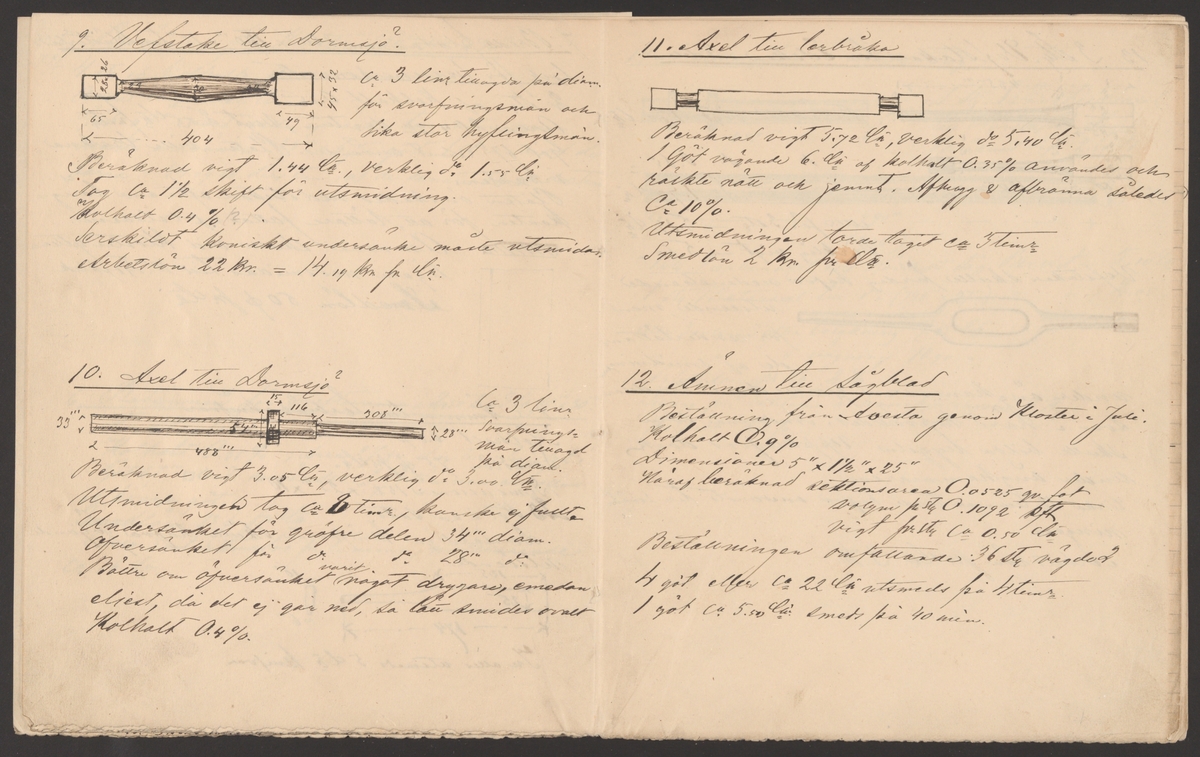 9. Vefstake till Dormsjö?
26
404
65
49
Ca 3 linr tillagda på diam.
för svarfningsmån och
lika stor hyflingsmån.
Beräknad vigt 1.44 Ctr., verklig do 1.55 Ctr
Tog ca 1 1/2 skift för utsmidning.
Kolhalt 0.4 %
Serskildt koniskt undersänke måste utsmidas.
Arbetslön 22 Kr. = 14.19 Kr pr Ctr.
10. Axel till Dormsjö?
15
116
308'''
33'''
54
28'''
488'''
Ca 3 linr
svarfnings-
mån tillagd
på diam.
Beräknad vigt 3.05 Ctr, verklig do 3.00 Ctr.
Utsmidningen tog ca 6 timr, kanske ej fullt
Undersänket för gröfre delen 34''' diam.
Öfversänket för do do 28''' do
Bättre om öfversänket varit något drygare, emedan
eljest, då det ej går ned, så lätt smides ovalt
Kolhalt 0.4%.
11. Axel till lerbråka
Beräknad vigt 5.72 Ctr, verklig do 5.40 Ctr.
1 Göt vägande 6. Ctr af kolhalt 0.35% användes och
räckte nätt och jemnt. Afhugg & afbränna således
Ca 10%.
Utsmidningen torde taget ca 5 timr
Smedlön 2 Kr. pr Ctr.
12. Ämnen till Sågblad
Beställning från Avesta genom Kloster i Juli.
Kolhalt 0.9%
Dimensioner 5" x 1 1/2" x 25"
Häraf beräknad sektionsarea 0.0525 qv. fot
volym pr st 0.1092
vigt pr st Ca 0.50 Ctr
Beställningen omfattande 36 St, vägde?
4 göt eller Ca 22 Ctr utsmeds på 4 timr
1 göt Ca 5.50 Ctr smeds på 40 min.